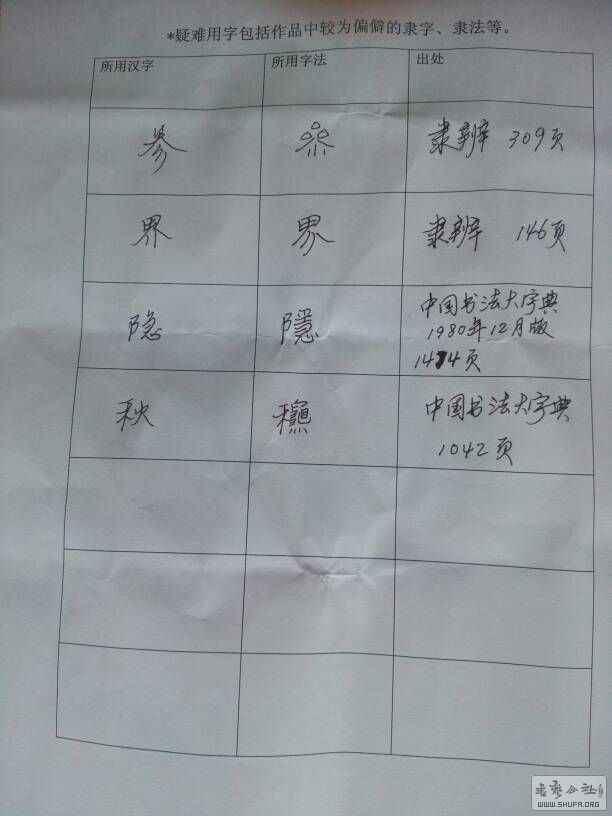 *疑难用字包括作品中较为偏僻的隶字、隶法等。
所用汉字 所用字法 出处
参 隶辨 309页
界 界 隶辨 146页
隐 隱 中国书法大字典
1980年12月版
1474页
秋 中国书法大字典
1042页
WWW.SHUFA.ORG